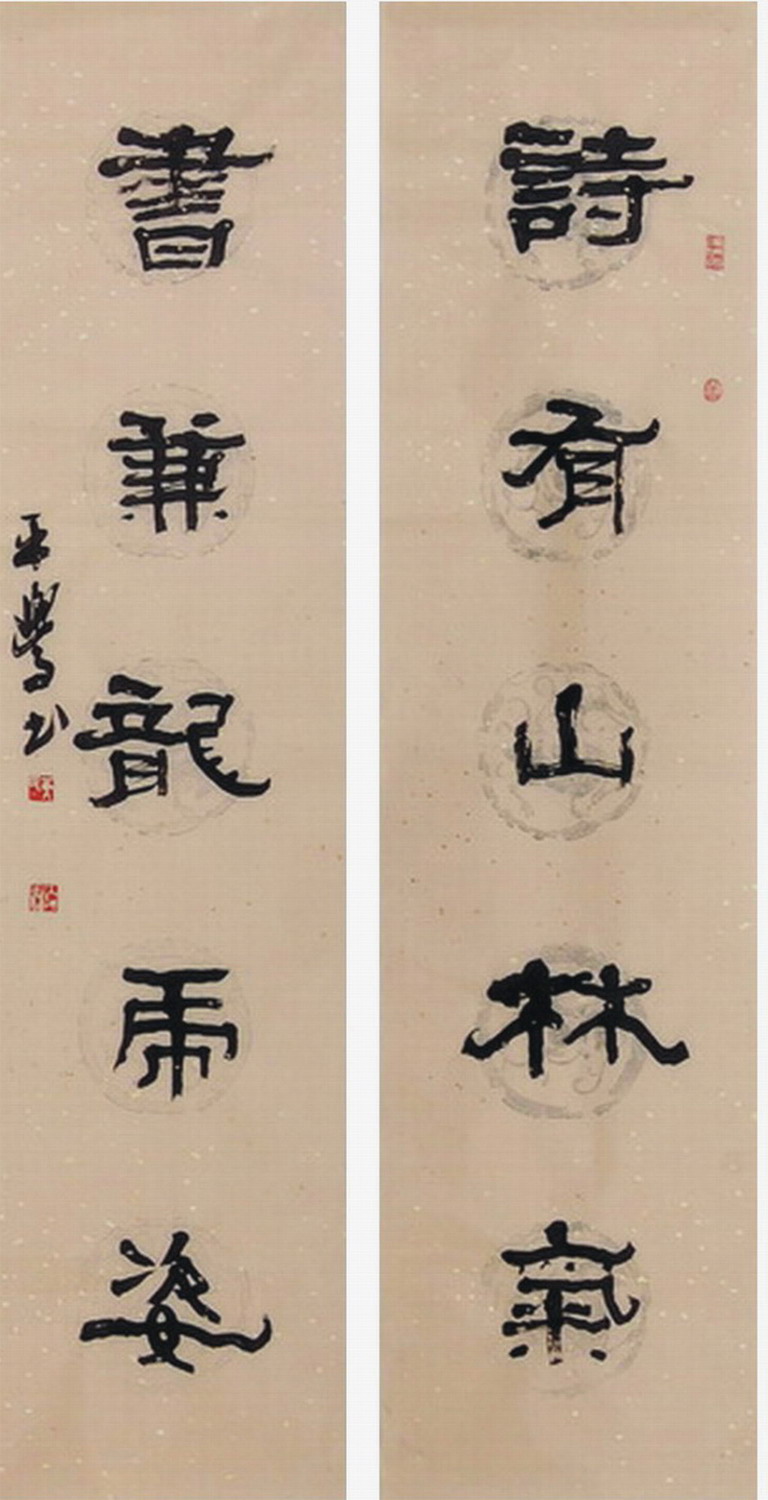 詩有山林氣
書兼龍虎姿